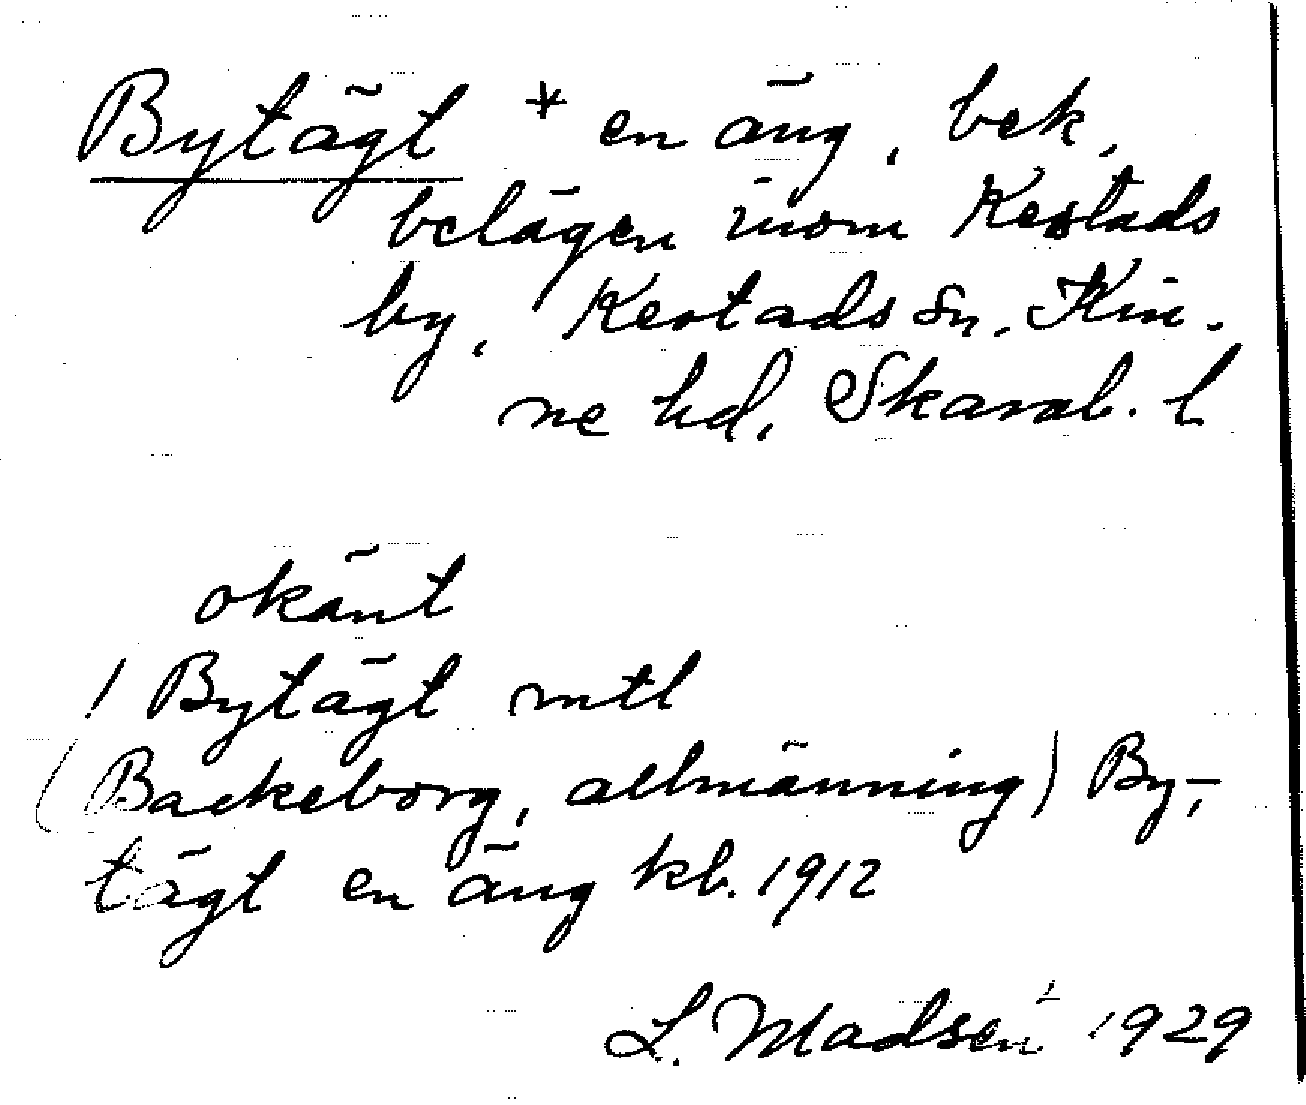 Bytägt * en äng, bek.
belägen inom Kestads
by, Kestads sn. Kin-
ne hd, Skarab. l
okänt
! Bytägt mtl
(Backeborg, allmänning) By-,
tägt en äng kb. 1912
L. Madsen 1929